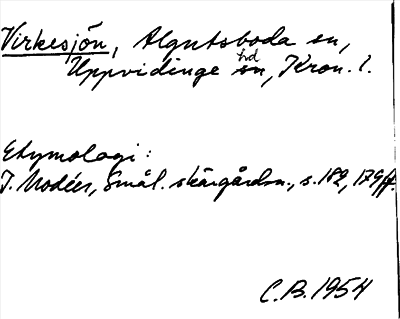 Virkesjön, Algutsboda sn,
Uppvidinge hd, Kron. l.
Etymologi:
I. Modéer, Smål. skärgårdsn., s. 182, 179 ff.
C.B. 1954